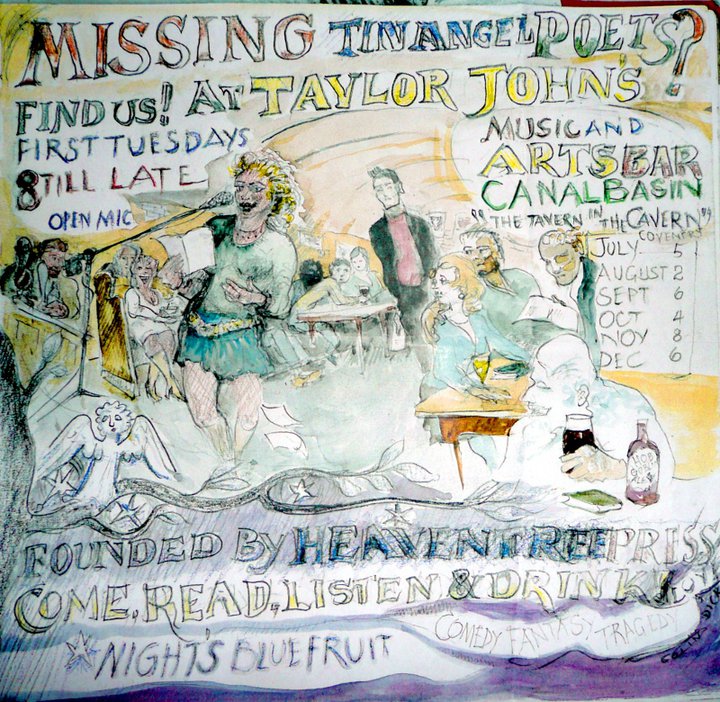 MISSING TIN ANGEL POETS?
FIND US! AT TAYLOR JOHN'S
FIRST TUESDAYS
8TILL LATE
OPEN MIC
MUSIC AND
ARTSBAR
CANAL BASIN
"THE TAVERN IN THE CAVERN"
COVENTRY
JULY 5
AUGUST 2
SEPT 6
OCT 4
NOV 8
DEC 6
FOUNDED BY HEAVENTREE PRESS
COME, READ, LISTEN & DRINK!
COMEDY FANTASY TRAGEDY
NIGHT'S BLUE FRUIT
COLIN DICK